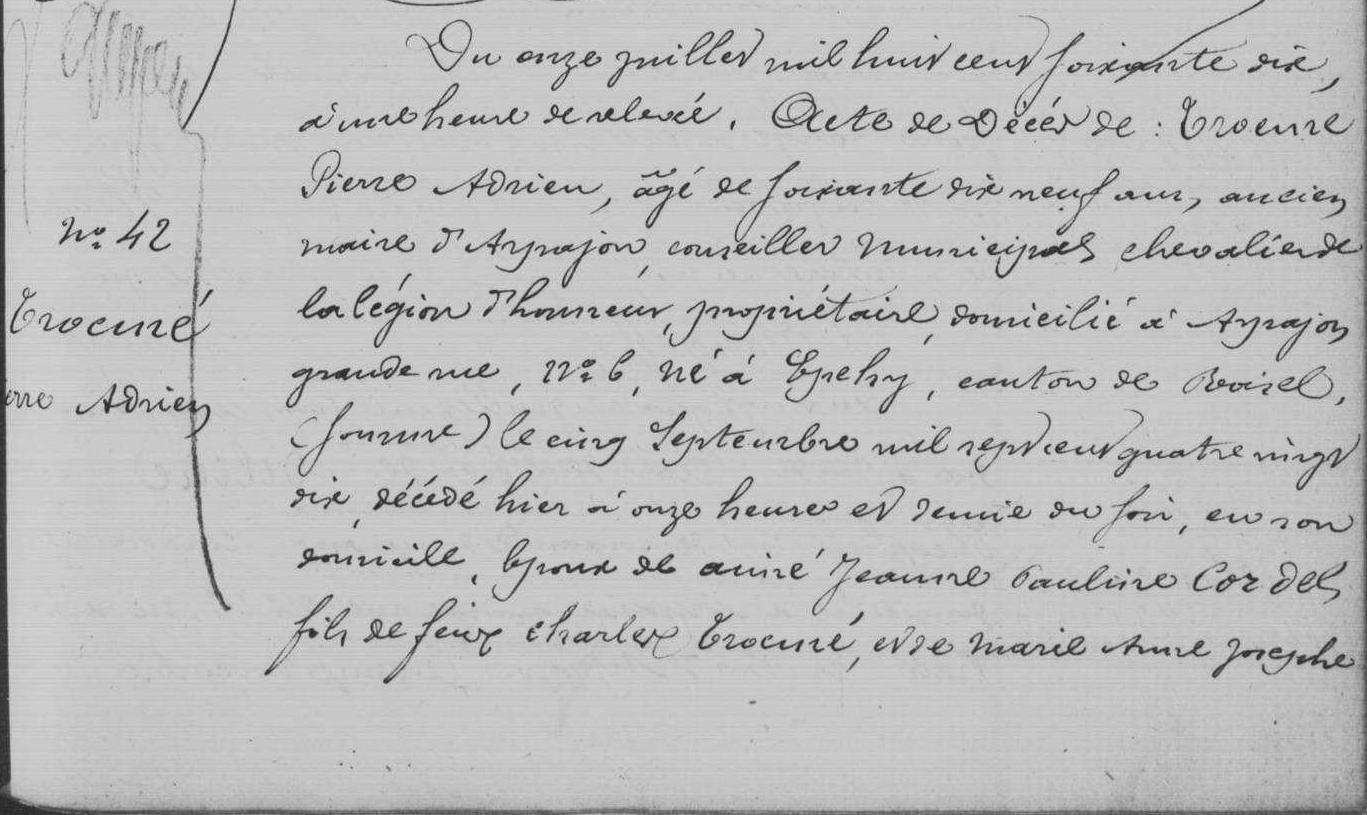 Du onze juillet mil huit cent soixante dix,
à une heure de relevée. Acte de Décès de : Trocmé
Pierre Adrien, âgé de soixante dix neuf ans, ancien
N° 42
maire d'Arpajon, conseiller municipal chevalier de
la légion d'honneur, propriétaire, domicilié à Arpajon
Trocmé
grande rue, N° 6, né à Epehy, canton de Roisel,
erre Adrien
(Somme) le cinq Septembre mil sept cent quatre vingt
dix, décédé hier à onze heures et demie du soir, en son
domicile, Epoux de Jeanne Pauline Cordel,
fils de feux Charles Trocmé, et de Marie Anne Josephe